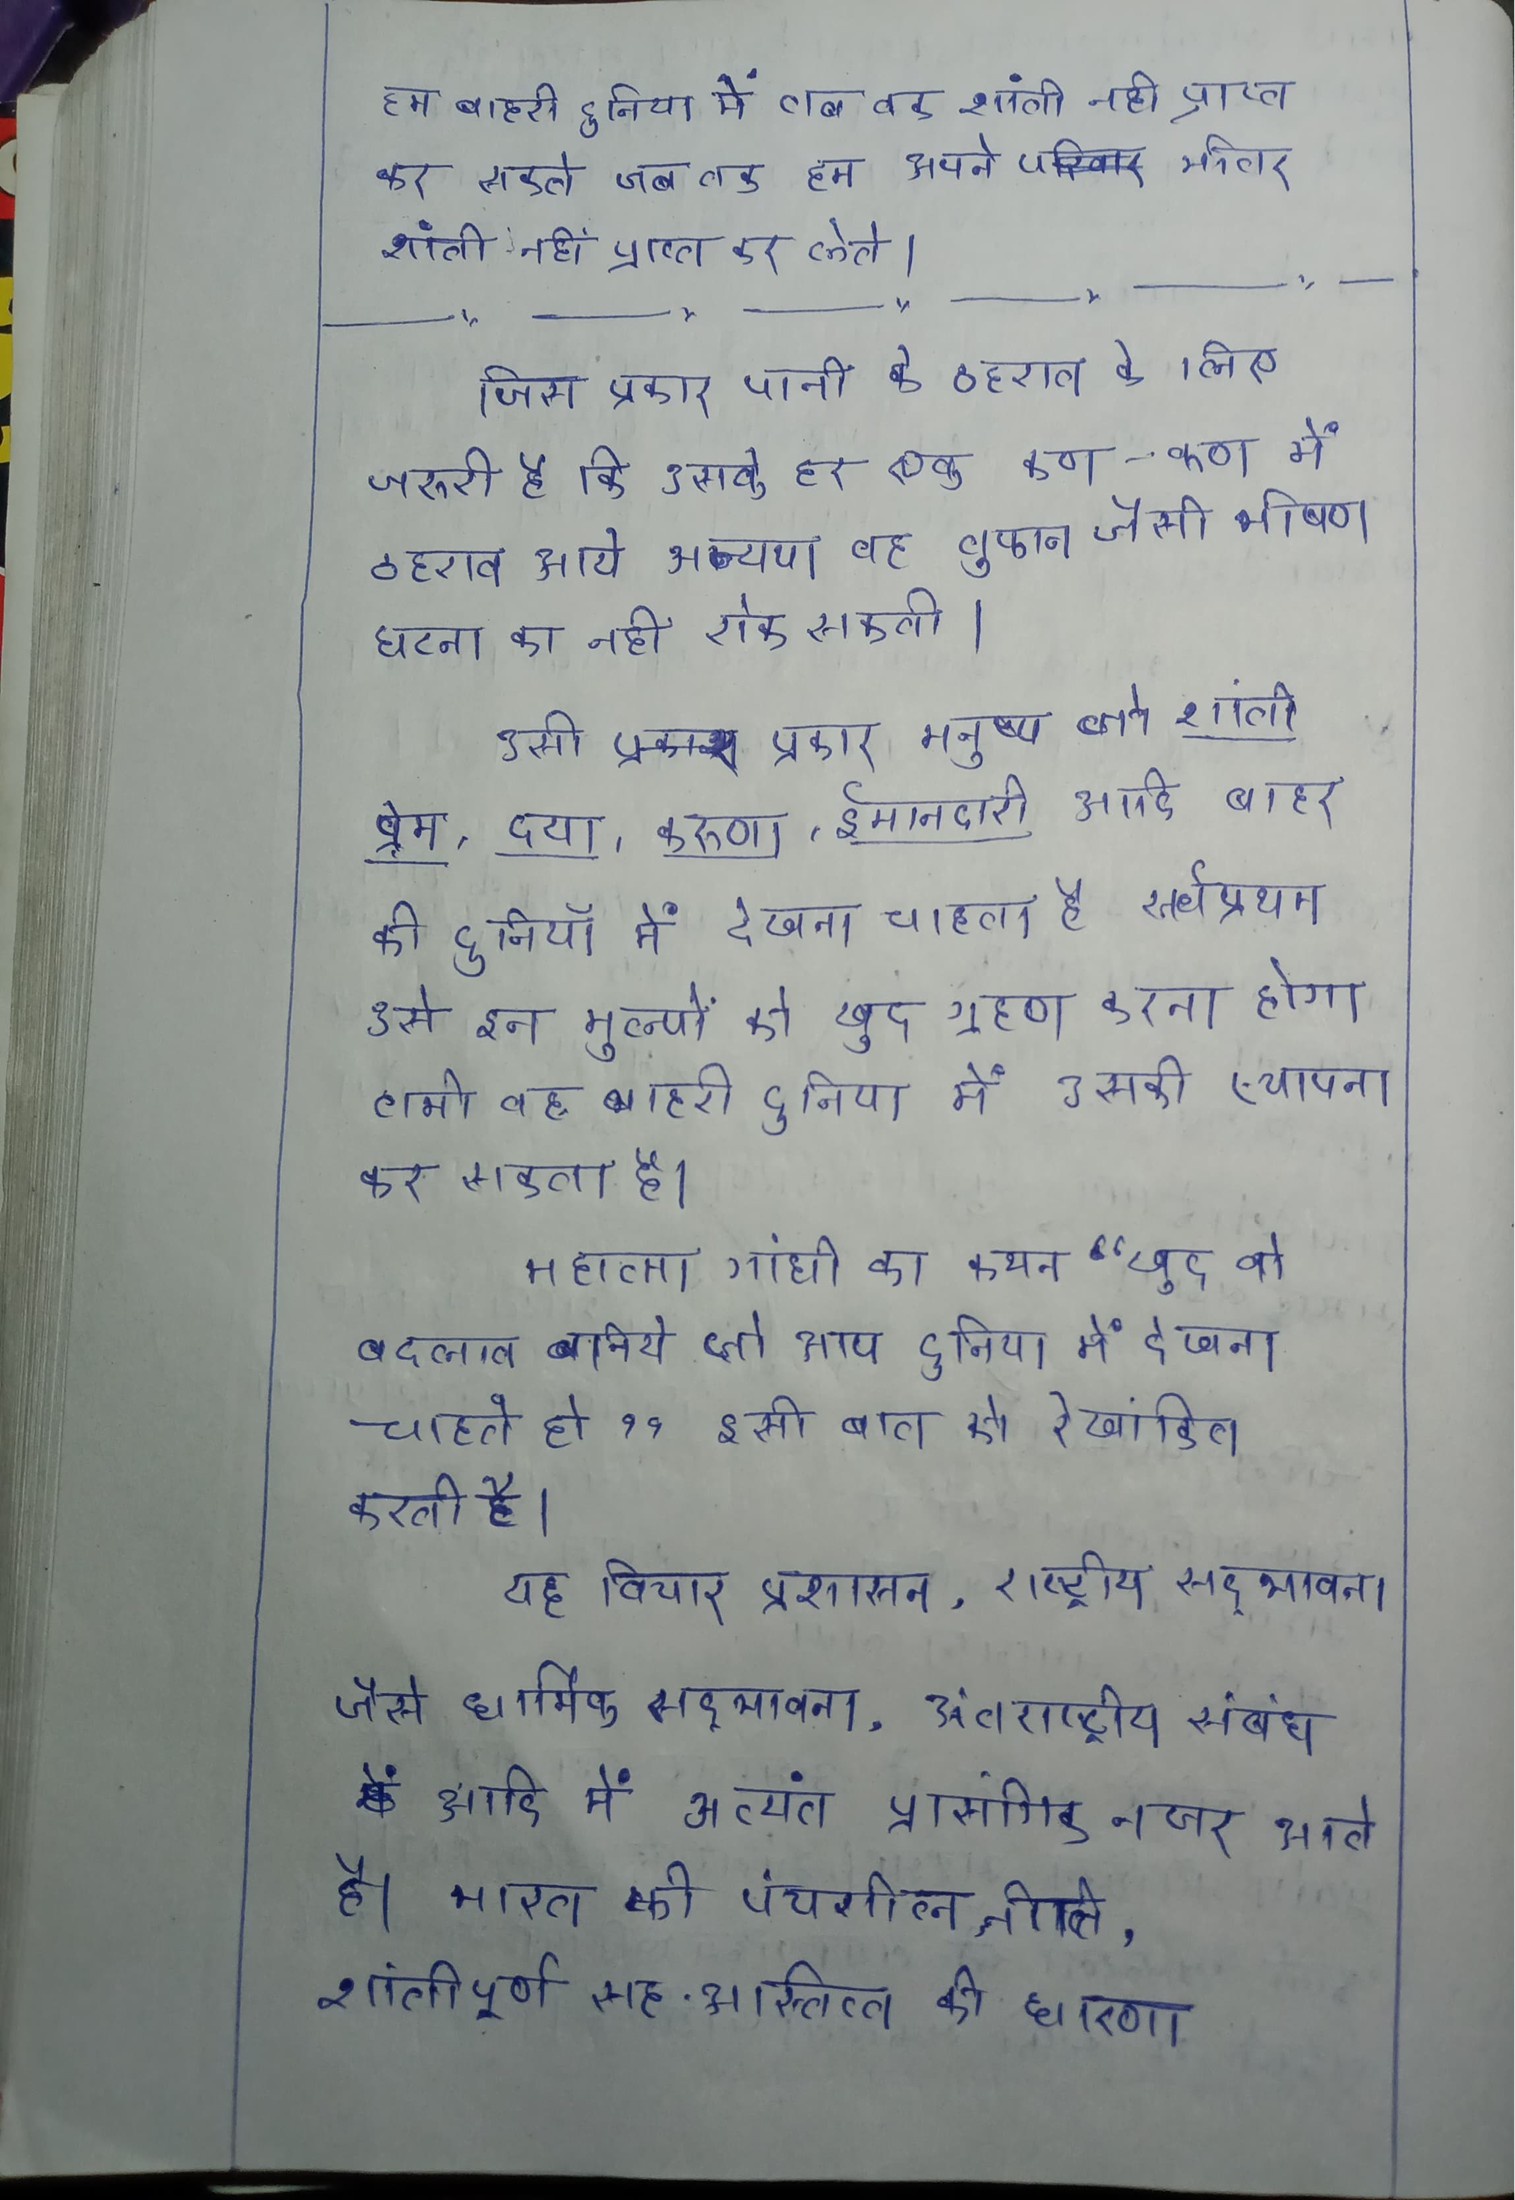 हम बाहरी दुनिया में तब तक शांती नही प्राप्त
कर सकते जब तक हम अपने भीतर
शांती नहीं प्राप्त कर लेते।
जिस प्रकार पानी के ठहराव के लिए
जरूरी है कि उसके हर एक कण - कण में
ठहराव आये अन्यथा वह तुफान जैसी भीषण
घटना का नही रोक सकती।
उसी प्रकार मनुष्य जो शांती
प्रेम, दया, करूणा, ईमानदारी आदि बाहर
की दुनियाँ में देखना चाहता है सर्वप्रथम
उसे इन मुल्यों को खुद ग्रहण करना होगा
तभी वह बाहरी दुनिया में उसकी स्थापना
कर सकता है।
महात्मा गांधी का कथन “खुद वो
बदलाव बनिये जो आप दुनिया में देखना
चाहते हो ” इसी बात को रेखांकित
करती है।
यह विचार प्रशासन, राष्ट्रीय सद्भावना
जैसे धार्मिक सद्भावना, अंतराष्ट्रीय संबंध
आदि में अत्यंत प्रासंगिक नजर आते
है। भारत की पंचशील नीति,
शांतीपूर्ण सह-अस्तित्व की धारणा